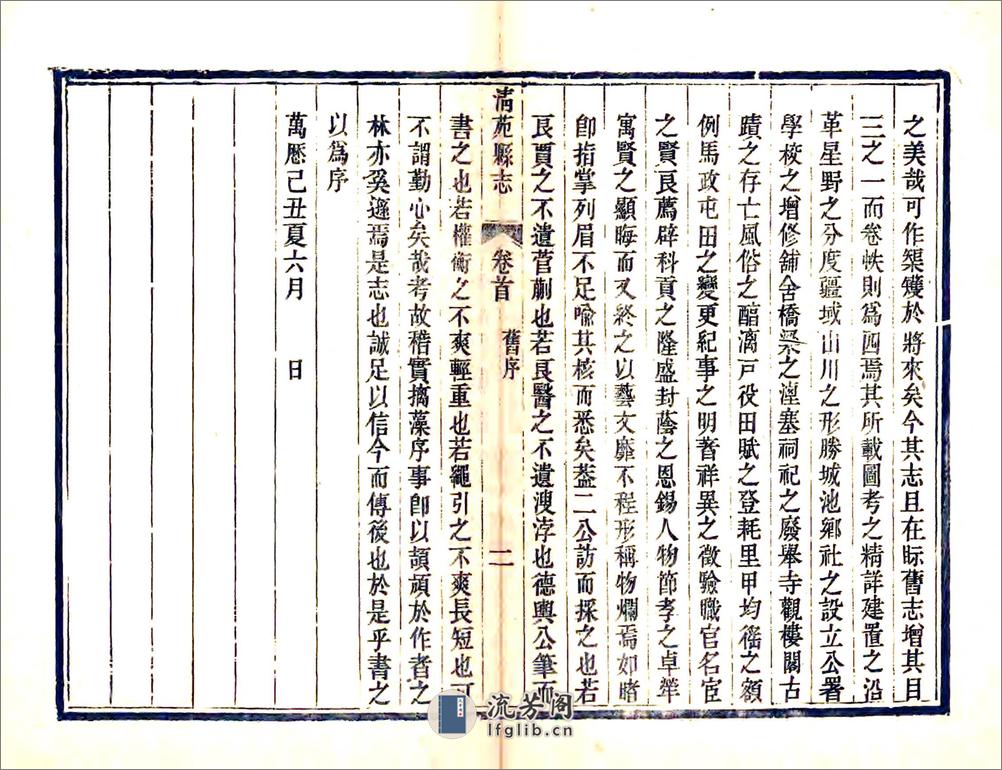 之美哉可作榘矱於將來矣今其志且在眎舊志增其目
三之一而卷帙則爲四焉其所載圖考之精詳建置之沿
革星野之分度疆域山川之形勝城池鄉社之設立公署
學校之增修舖舍橋梁之湮塞祠祀之廢舉寺觀樓閣古
蹟之存亡風俗之醕漓戸役田賦之登耗里甲均徭之額
例馬政屯田之變更紀事之明著祥異之徵驗職官名宦
之賢良薦辟科貢之隆盛封蔭之恩錫人物節孝之卓犖
寓賢之顯晦而又終之以藝文靡不程形稱物爛焉如睹
卽指掌列眉不足喩其核而悉矣葢二公訪而採之也若
良賈之不遺菅蒯也若良醫之不遺溲浡也德輿公筆而
清苑縣志
卷首
舊序
二
書之也若權衡之不爽輕重也若繩引之不爽長短也可
不謂勤心矣哉考故稽實摛藻序事卽以頡頏於作者之
林亦奚遜焉是志也誠足以信今而傳後也於是乎書之
以爲序
萬厯己丑夏六月 日
流芳阁
lfglib.cn